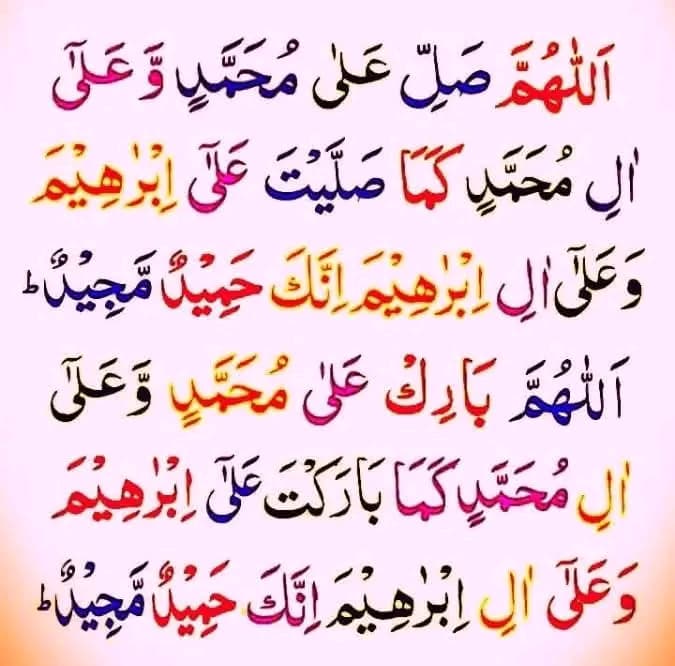 اَللّٰهُمَّ صَلِّ عَلٰى مُحَمَّدٍ وَّ عَلٰٓى
اٰلِ مُحَمَّدٍ كَمَا صَلَّيْتَ عَلٰٓى اِبْرٰهِيْمَ
وَ عَلٰٓى اٰلِ اِبْرٰهِيْمَ اِنَّكَ حَمِيْدٌ مَّجِيْدٌ ؕ
اَللّٰهُمَّ بَارِكْ عَلٰى مُحَمَّدٍ وَّ عَلٰٓى
اٰلِ مُحَمَّدٍ كَمَا بَارَكْتَ عَلٰٓى اِبْرٰهِيْمَ
وَ عَلٰٓى اٰلِ اِبْرٰهِيْمَ اِنَّكَ حَمِيْدٌ مَّجِيْدٌ ؕ